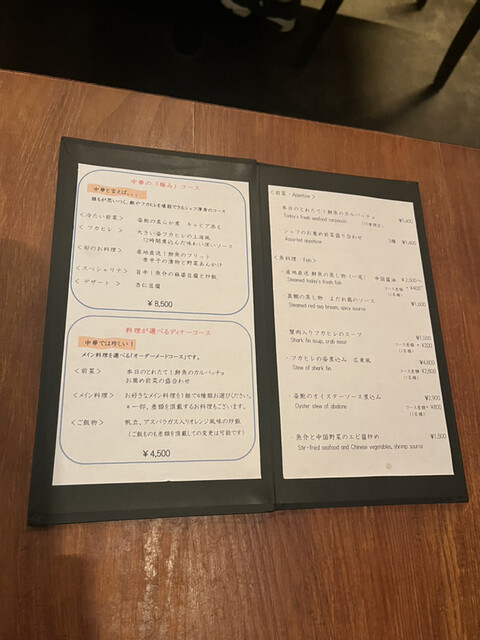 中華の「極み」コース
中華と言えば。。。
誰もが思いつく、鮑やフカヒレを堪能できるシェフ渾身のコース
<冷たい前菜> 蒸鮑の柔らか煮 キャビア添え
<フカヒレ> 大きい姿フカヒレの上海風
12時間煮込んだ味わい深いソース
<旬のお料理> 産地直送!鮮魚のフリット
青唐辛子の漬物と野菜あんかけ
<スペシャリテ> 旨辛!魚介の麻婆豆腐と炒飯
<デザート> 杏仁豆腐
¥8,500
料理が選べるディナーコース
中華では珍しい!
メイン料理を選べる「オーダーメードコース」です。
<前菜> 本日のとれたて!鮮魚のカルパッチョ
お薦め前菜の盛合わせ
<メイン料理> お好きなメイン料理を1組で4種類お選びください。
*一部、差額を頂戴するお料理もございます。
<ご飯物> 帆立、アスパラガス入りオレンジ風味の炒飯
(ご飯ものも差額を頂戴しての変更は可能です)
¥4,500
<前菜・Appetizer>
本日のとれたて!鮮魚のカルパッチョ ¥1,400
Today's fresh seafood carpaccio
シェフのお薦め前菜盛り合わせ 3種 ¥1,400
Assorted appetizer
<魚料理・Fish>
・産地直送鮮魚の蒸し物(一尾) 中国醤油 ¥2,500~
Steamed today's fresh fish コース差額 + ¥400~
(1名様)
真鯛の蒸し物 よだれ鶏のソース ¥1,600
Steamed red sea bream, spicy source
蟹肉入りフカヒレのスープ ¥1,500
Shark fin soup, crab meat コース差額 + ¥300
(1名様)
・フカヒレの姿煮込み 広東風 ¥4,800
Stew of shark fin コース差額 + ¥2,800
(1名様)
蒸鮑のオイスターソース煮込み ¥2,900
Oyster stew of abalone コース差額 + ¥800
(1名様)
・魚介と中国野菜のエビ醤炒め ¥1,500
Stir-fried seafood and Chinese vegetables, shrimp source